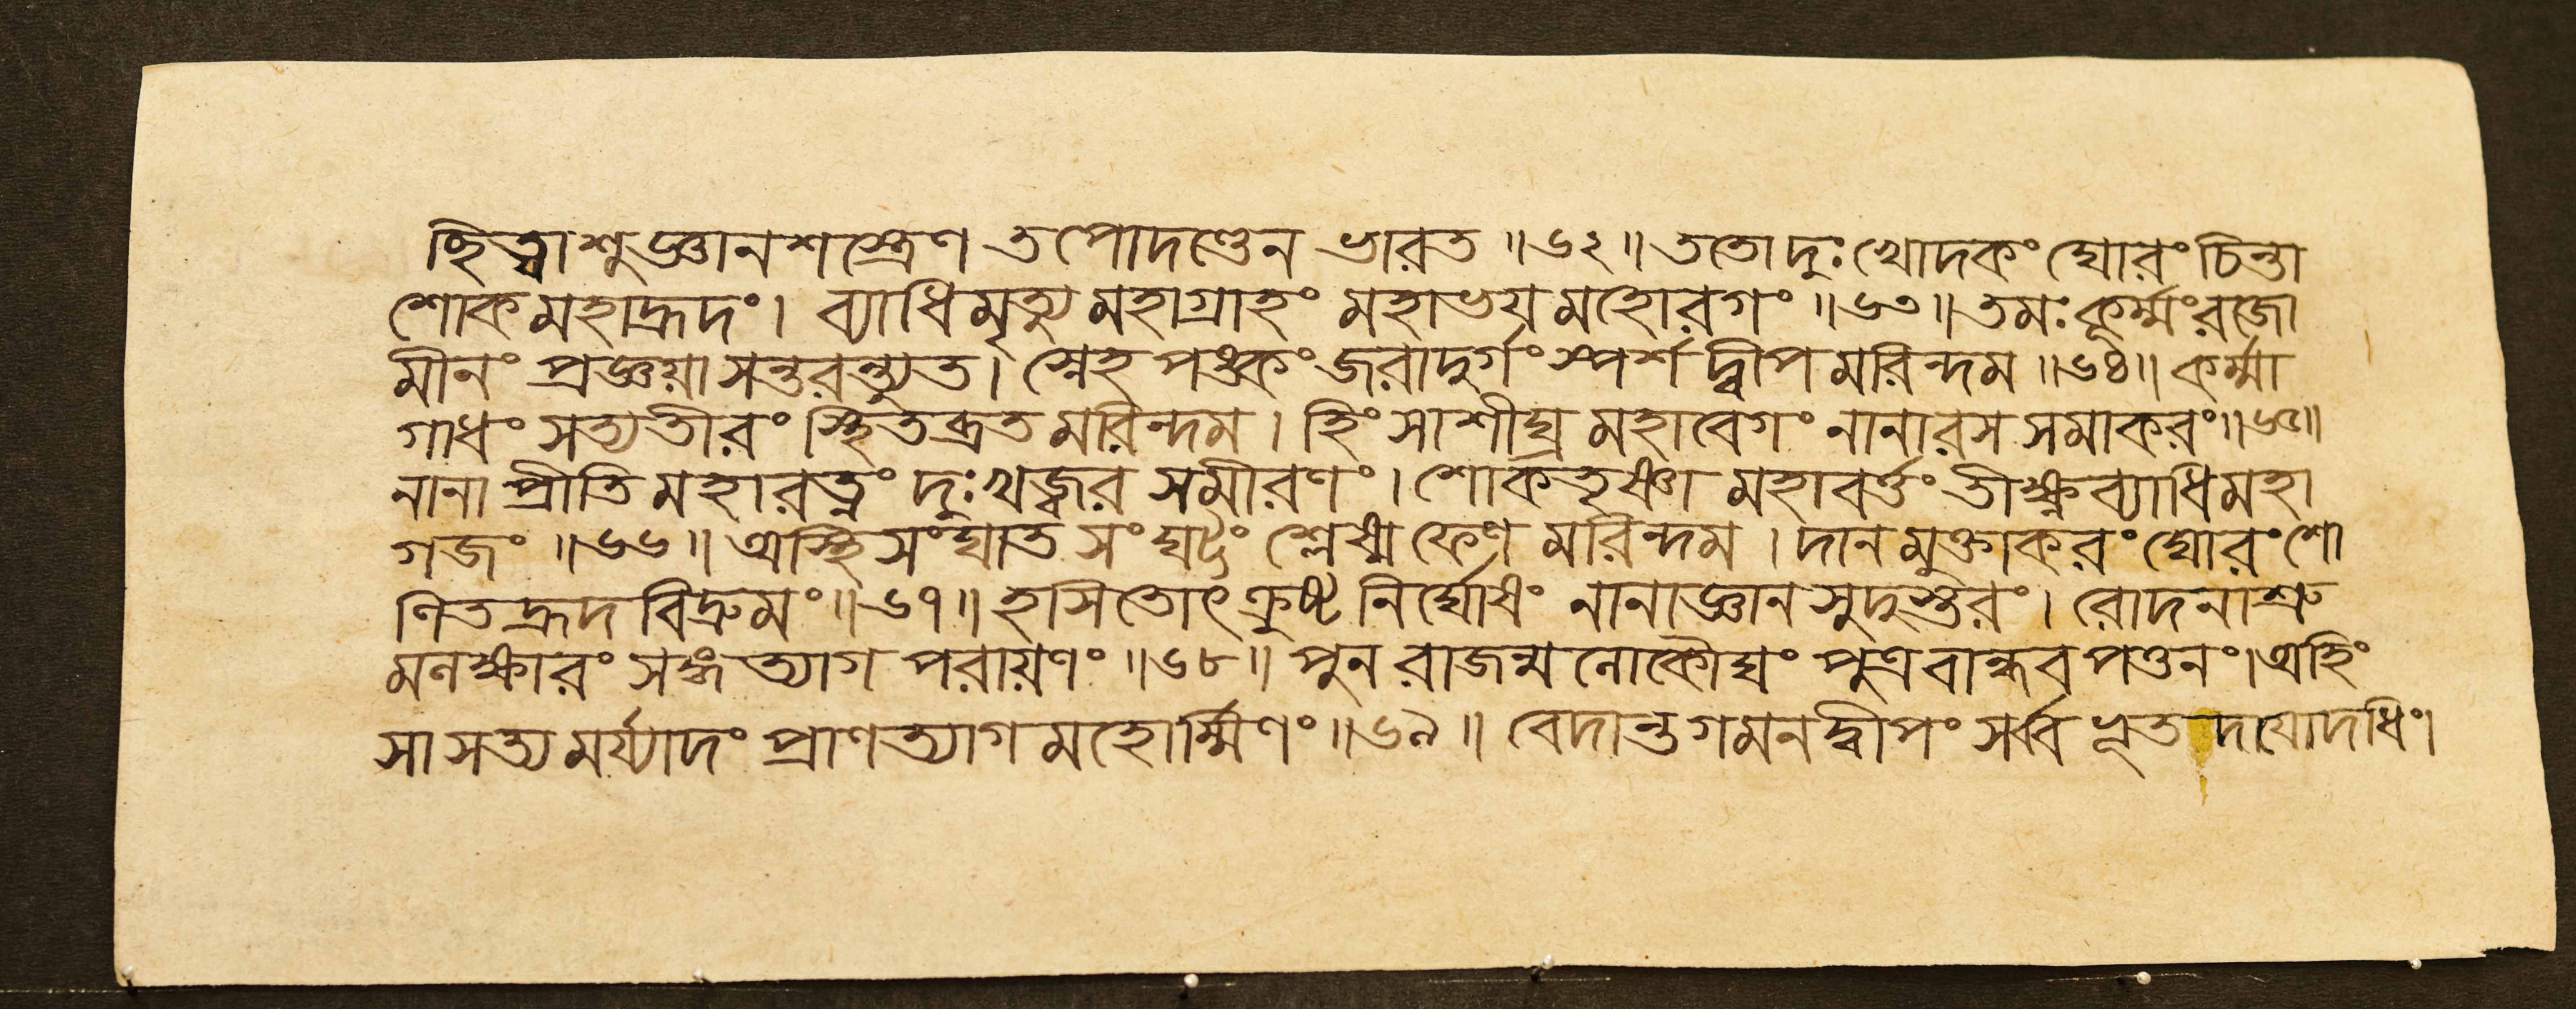 ছিত্ত্বাশুজ্ঞানশস্ত্রেণ তপোদণ্ডেন ভারত ॥৬২॥ ততোদুঃখোদকং ঘোরং চিন্তা
শোকমহাহ্রদং। ব্যাধিমৃত্যু মহাগ্রাহং মহাভয়মহোরগং ॥৬৩॥ তমঃকূর্ম্মংরজো
মীনং প্রজ্ঞয়া সন্তরন্ত্যুত। স্নেহপঙ্কং জরাদুর্গং স্পর্শদ্বীপমরিন্দম ॥৬৪॥ কর্ম্মা
গাধং সত্যতীরং স্থিতব্রতমরিন্দম। হিংসাশীঘ্রমহাবেগং নানারসসমাকরং॥৬৫॥
নানা প্রীতি মহারত্নং দুঃখজ্বরসমীরণং। শোকতৃষ্ণা মহাবর্ত্তং তীক্ষ্ণব্যাধিমহা
গজং ॥৬৬॥ অস্থিসংঘাতসংঘট্টং শ্লেষ্মফেণমরিন্দম। দানমুক্তাকরং ঘোরং শো
ণিতহ্রদবিদ্রুমং॥৬৭॥ হাসিতোৎক্রুষ্টনির্ঘোষং নানাজ্ঞানসুদুস্তরং। রোদনাশ্রু
মনক্ষারং সঙ্গত্যাগপরায়ণং ॥৬৮॥ পুনরাজন্মনোকৌঘং পুত্রবান্ধবপত্তনং।অহিং
সাসত্যমর্য্যাদং প্রাণত্যাগমহোর্ম্মিণং॥৬৯॥ বেদান্তগমনদ্বীপং সর্ব্বভূতদায়োদধিং।